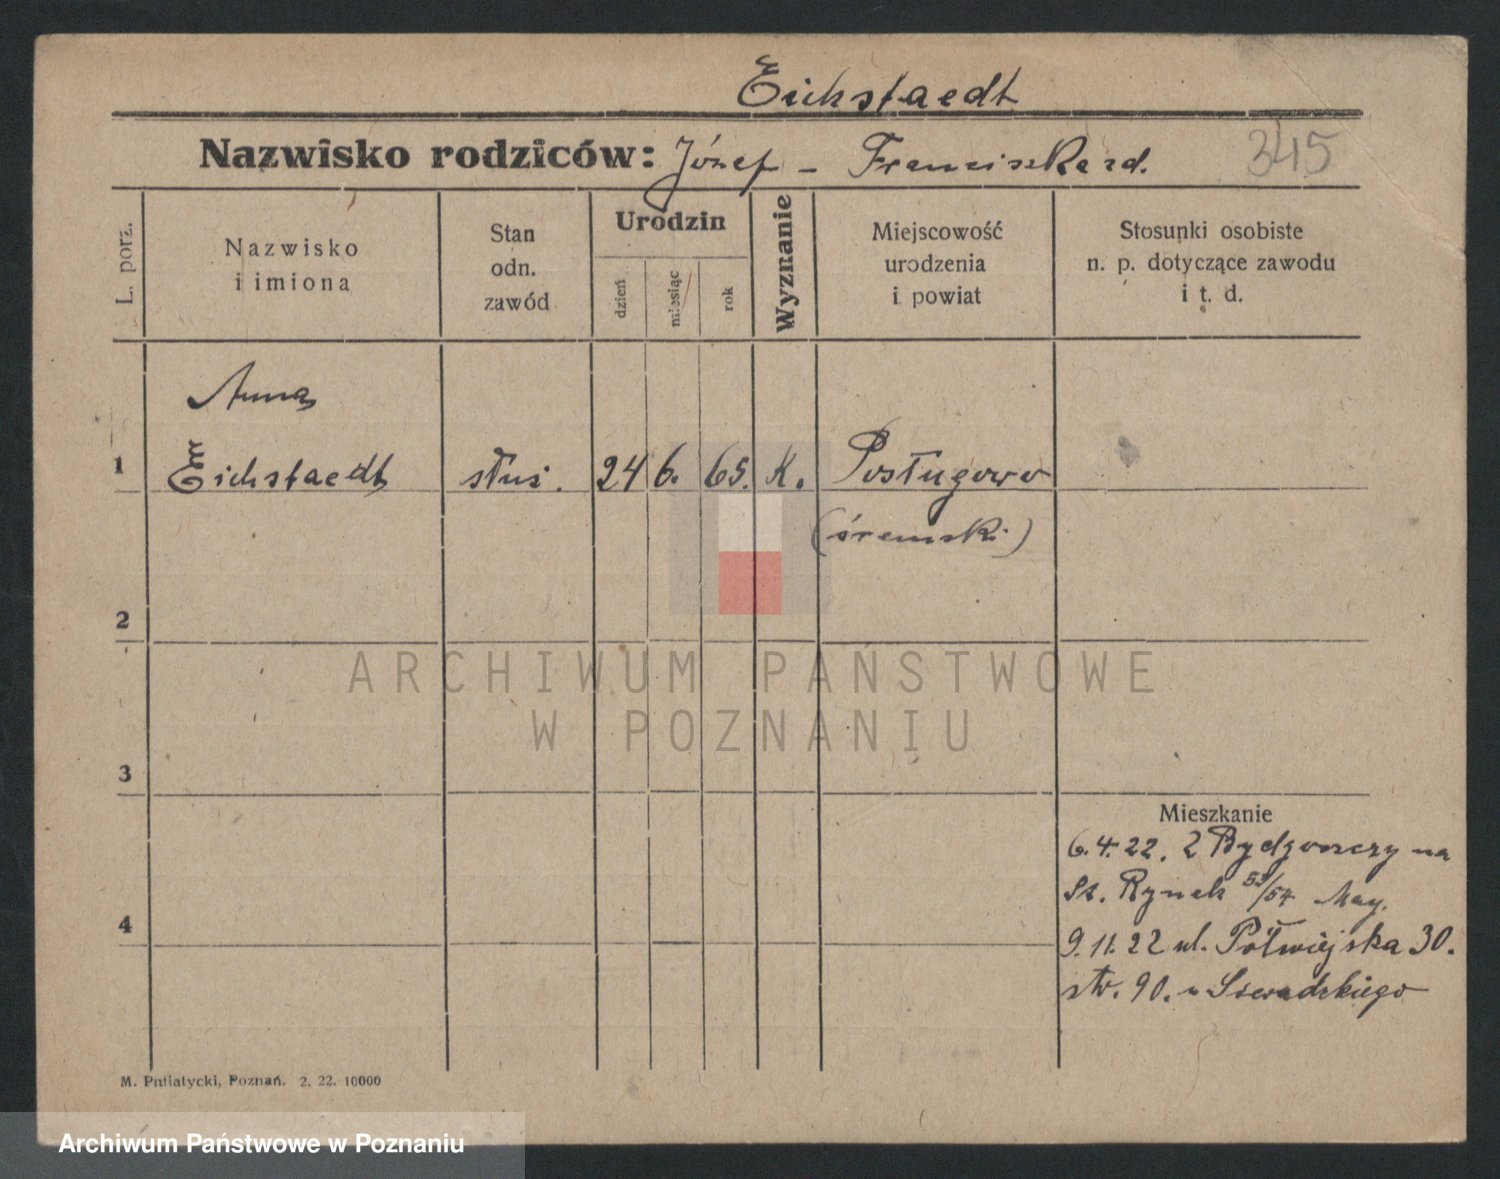 Eichstaedt
Nazwisko rodziców: Józef - Franciszka zd. 345
L. porz.
Nazwisko i imiona
Stan odn. zawód
Urodzin
dzień
miesiąc
rok
Wyznanie
Miejscowość urodzenia i powiat
Stosunki osobiste n. p. dotyczące zawodu i t. d.
Anna
1 Eichstaedt służ. 24 6. 65. K. Posługowo
(śremski)
2
ARCHIWUM PAŃSTWOWE
W POZNANIU
3
Mieszkanie
6.4.22. z Bydgoszczy na
St. Rynek 53/54
4
9.11.22 ul. Półwiejska 30.
str. 90. u
M. Putiatycki, Poznań. 2. 22. 10000
Archiwum Państwowe w Poznaniu